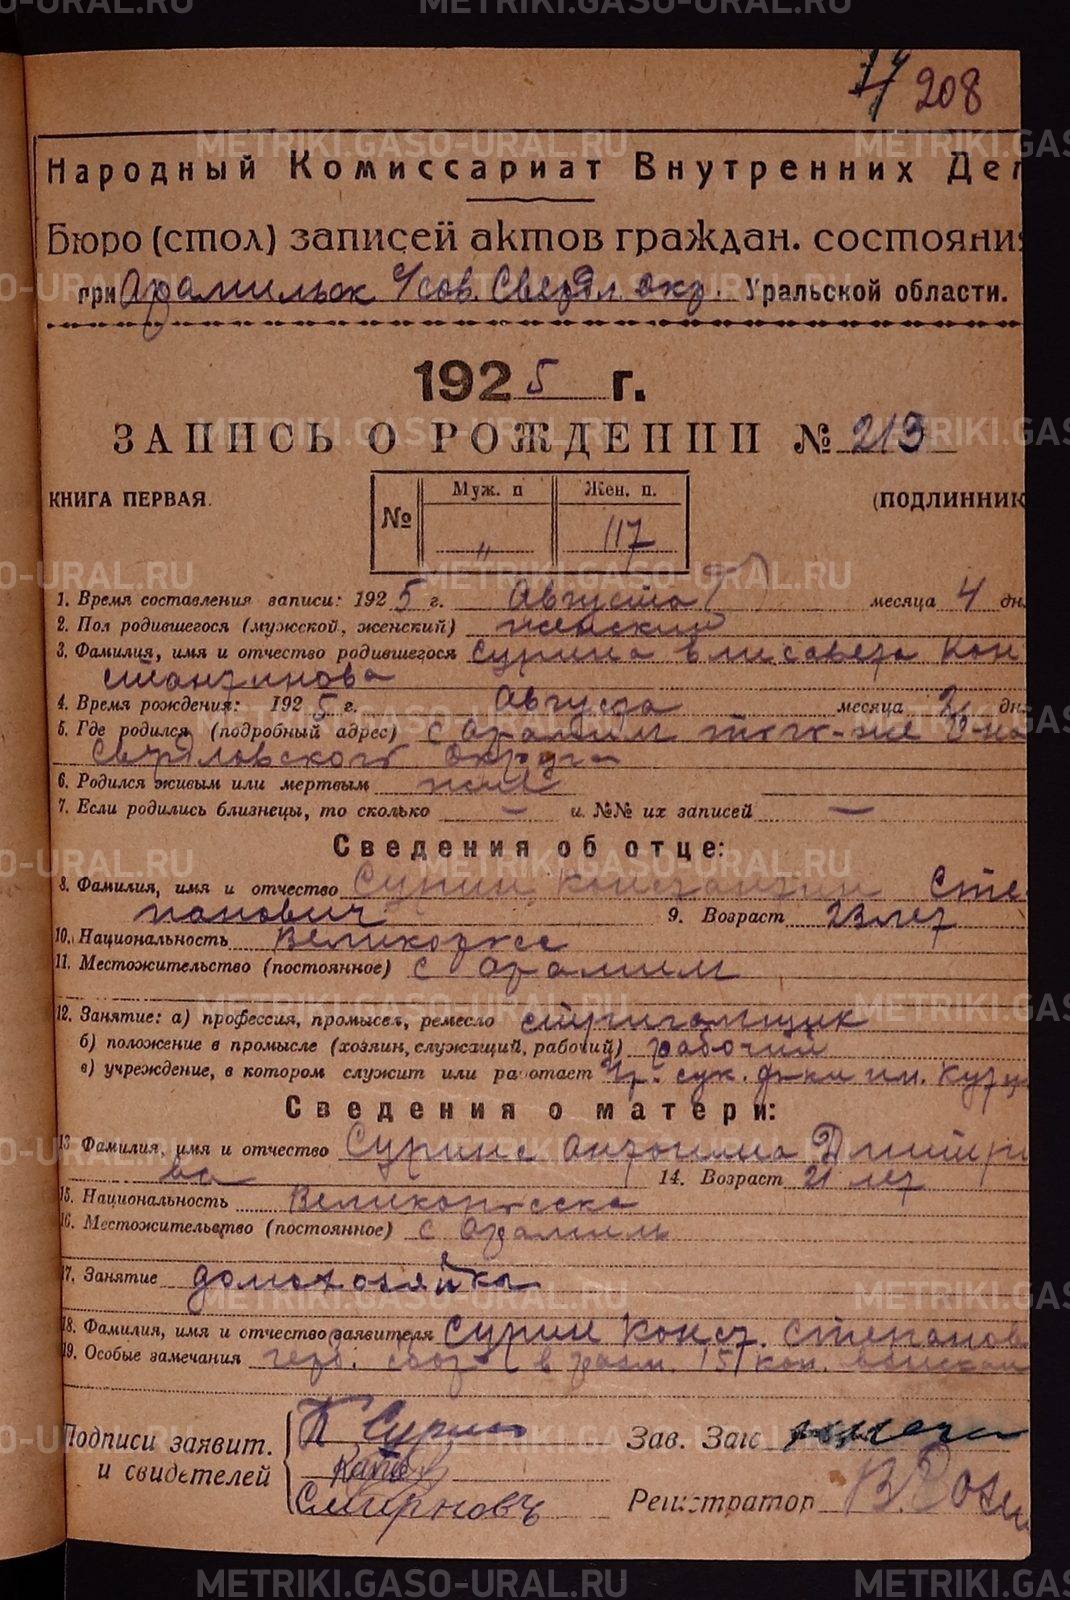 METRIKI.GASO-URAL.RU
208
Народный Комиссариат Внутренних Дел
Бюро (стол) записей актов граждан. состояния
при Арамильск с/сов. Свердл. окр. Уральской области.
1925 г.
ЗАПИСЬ О РОЖДЕНИИ № 213
КНИГА ПЕРВАЯ. (ПОДЛИННИК
№ Муж. п Жен. п.
" 117
1. Время составления записи: 1925 г. Августа месяца 4 дн.
2. Пол родившегося (мужской, женский) женский
3. Фамилия, имя и отчество родившегося Сурина Елисавета Кон
стантинова
4. Время рождения: 1925 г. Августа месяца 2 дн.
5. Где родился (подробный адрес) с Арамиль того-же р-на
Свердловского округа
6. Родился живым или мертвым
7. Если родились близнецы, то сколько — и №№ их записей —
Сведения об отце:
8. Фамилия, имя и отчество Сурин Константин Сте
панович 9. Возраст 23 лет
10. Национальность Великоросс
11. Местожительство (постоянное) с Арамиль
12. Занятие: а) профессия, промысел, ремесло стригальщик
б) положение в промысле (хозяин, служащий, рабочий) рабочий
в) учреждение, в котором служит или работает Ар. сук. ф-ки им.
Сведения о матери:
13 Фамилия, имя и отчество Сурина Антонина Дмитри
ва 14. Возраст 21 лет
15. Национальность Великорсска
16. Местожительство (постоянное) с Арамиль
17. Занятие домохозяйка
18. Фамилия, имя и отчество заявителя Сурин Конст. Степанов
19. Особые замечания герб. сбор в разм. 15 коп. взыскан
Подписи заявит. и свидетелей
К Сурин
Смирновъ
Зав. Загс
Регистратор